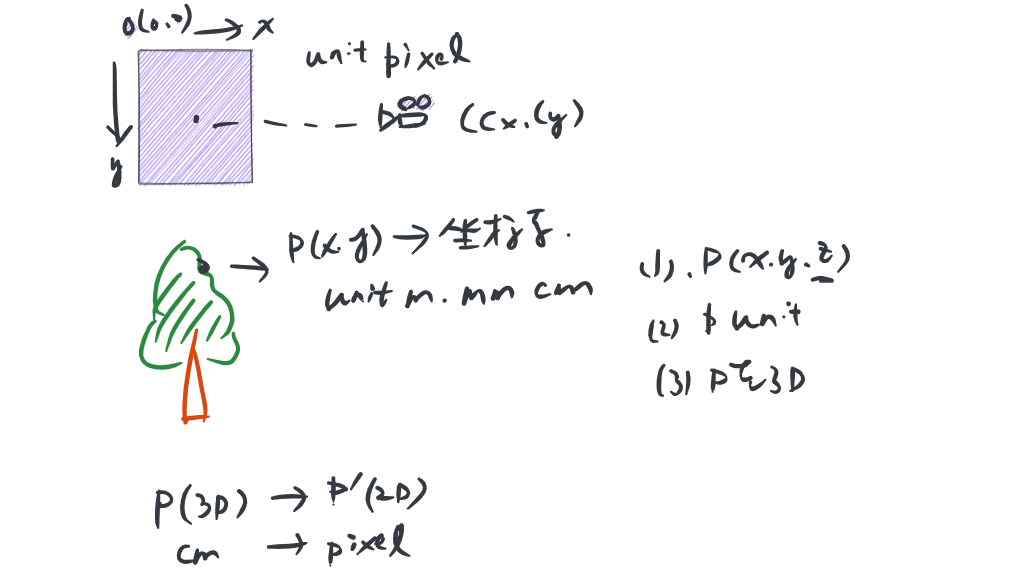 O(0,0) → x
y
unit pixel
(Cx.Cy)
P(x.y) → 坐标系.
unit m. mm cm
(1). P(x.y.z)
(2) P unit
(3) P 3D
P(3D) → P'(2D)
cm → pixel